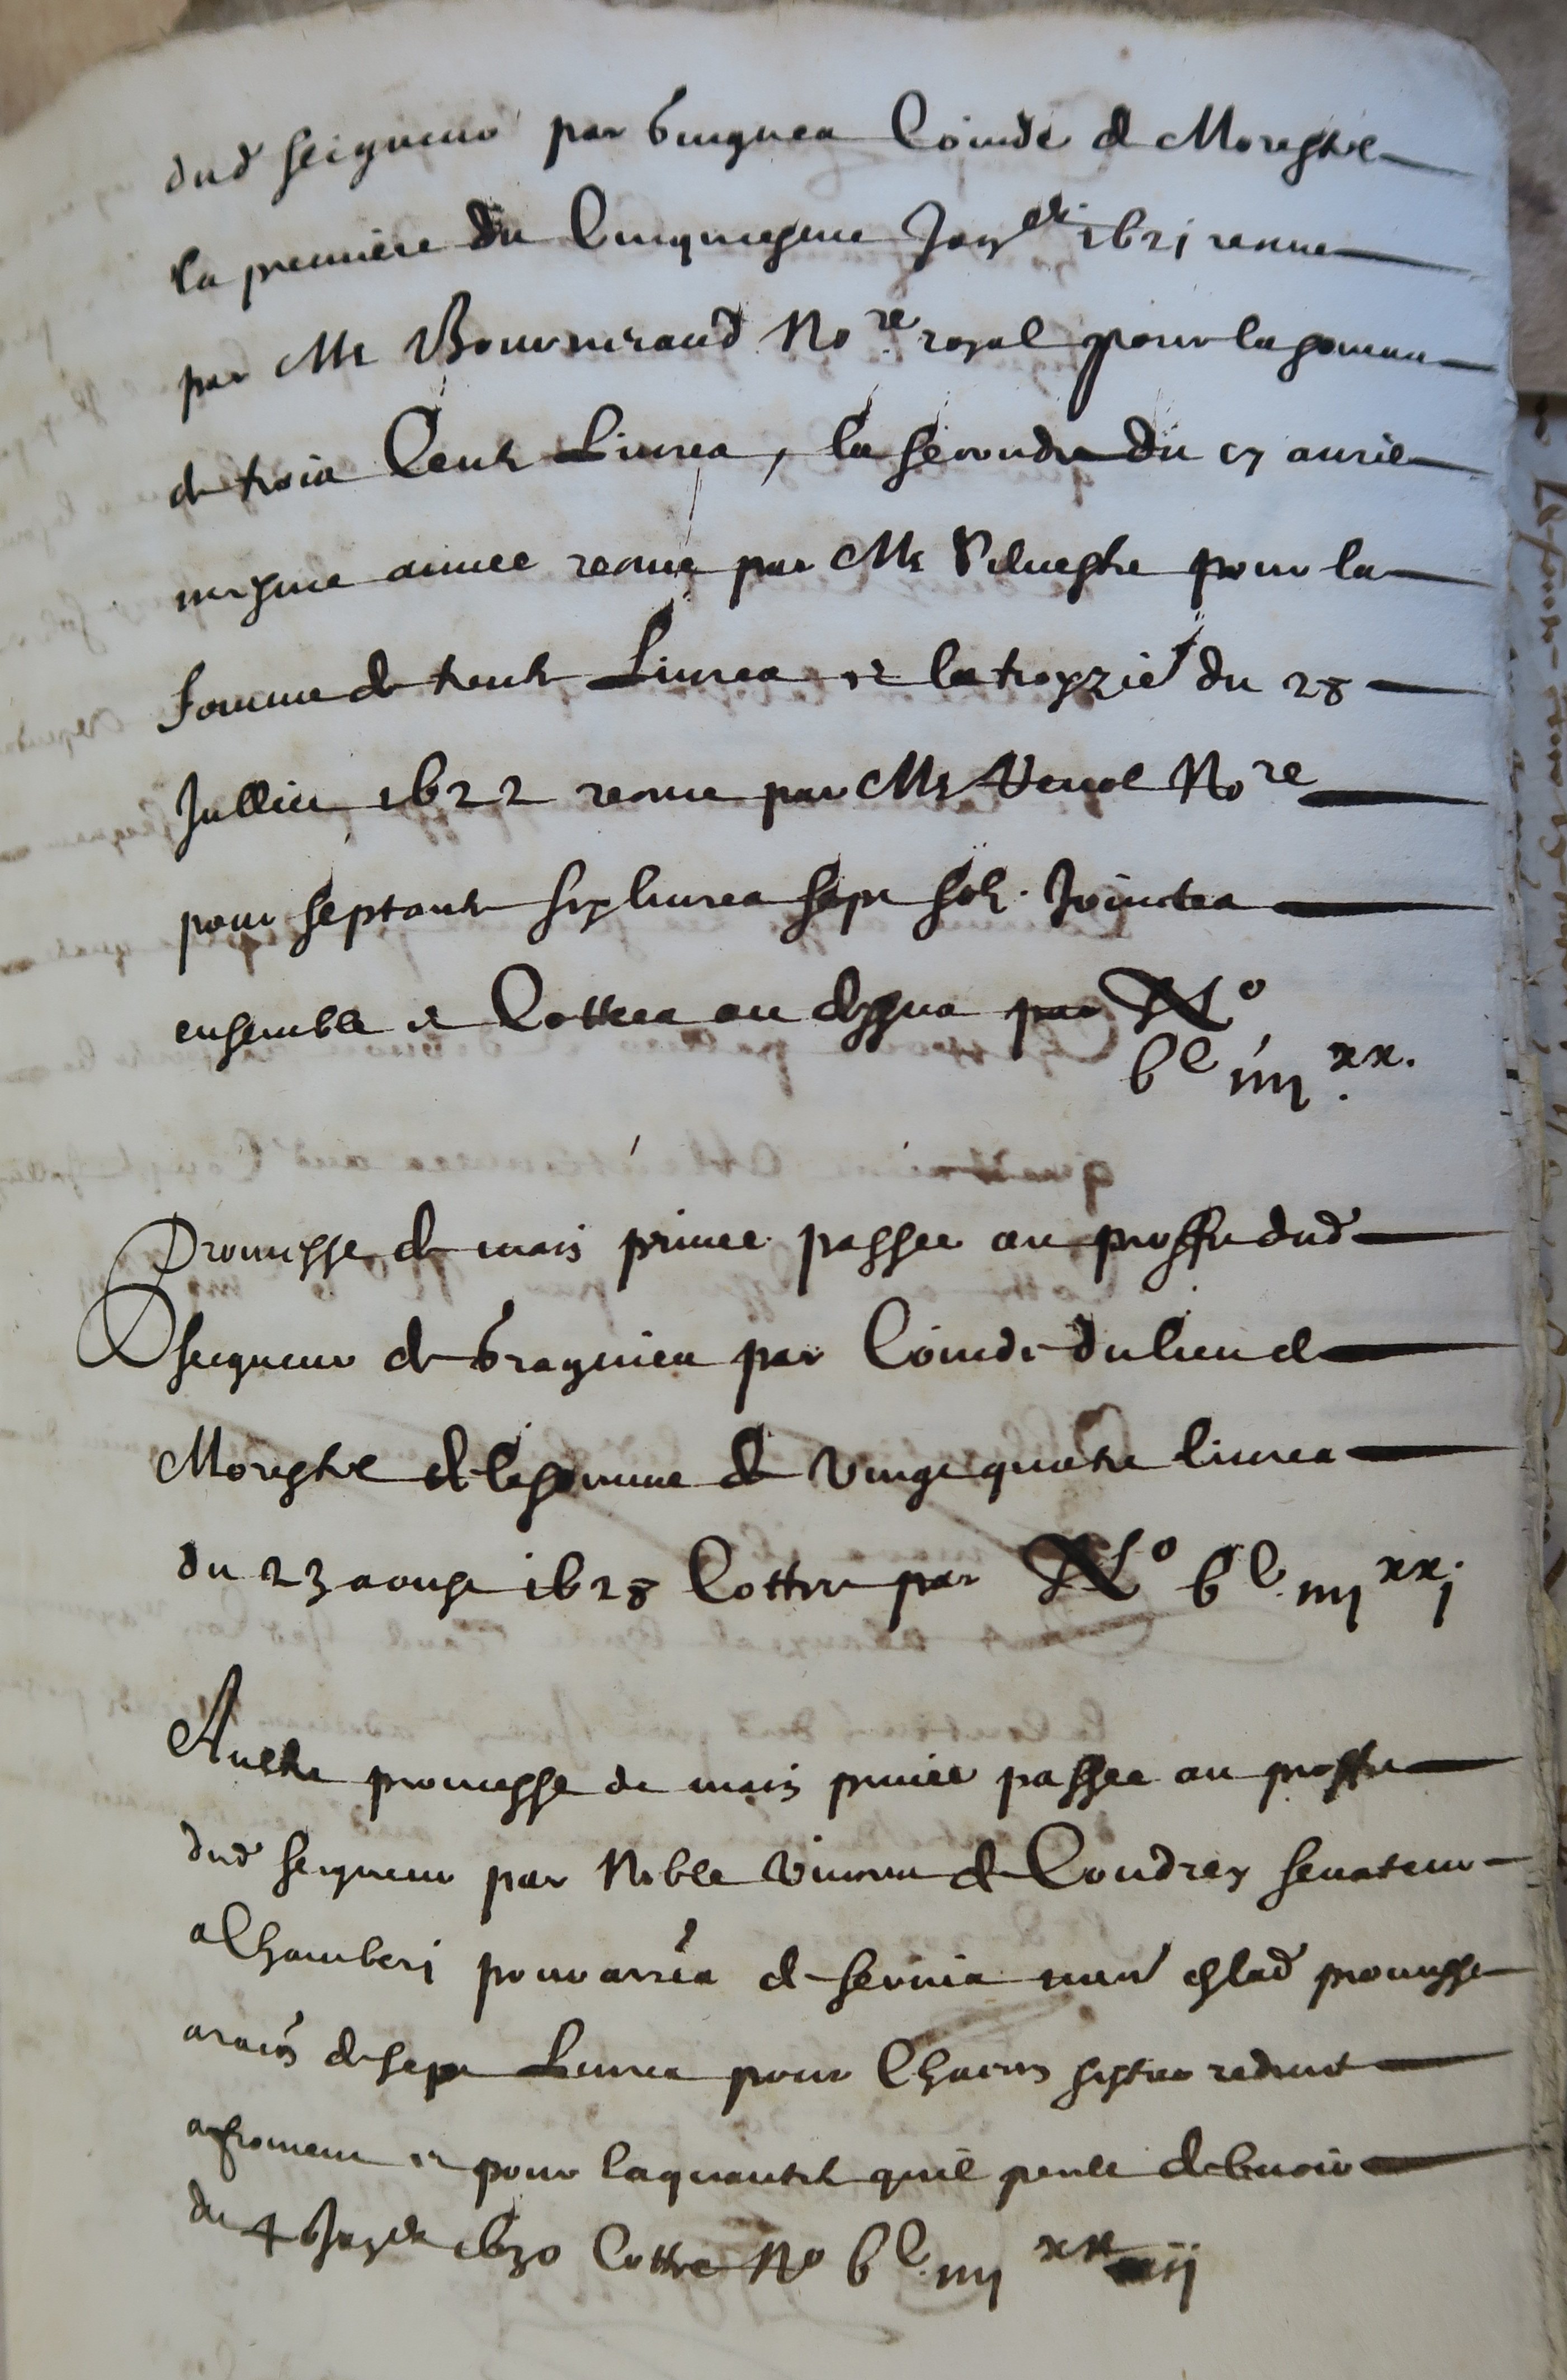 dud seigneur par hugues Coindе de Morestel
la premiere du Cinquiesme Janr 1621 receue
par Me Bouvmeraud Nore royal pour la somme
de trois Cent Livres, la seconde du 17 avril
mesme annee receue par Me Silvestre pour la
somme de trente Livres et la troyzie du 28
Jullier 1622 receue par Me Nore
pour septante six livres sept solz Jointes
ensemble et Cottees au dessus par No
bc iiii xx.
Promesse de main privee passee au proffit dud
seigneur de bragnieu par Coinde du lieu de
Morestel de la somme de vingt quatre livres
du 23 aoust 1628 Cottee par No bc iiii xx j
Aultre promesse de main privee passee au proffit
dud seigneur par Noble de Coudrey senateur
a Chambery pour arrea de servis mend esd lad promesse
a raison de sept Livres pour Chacun sestier reduict
a froment et pour la quantite quil peult debvoir
du 4 Janr 1630 Cotte No bc iiii xx ij